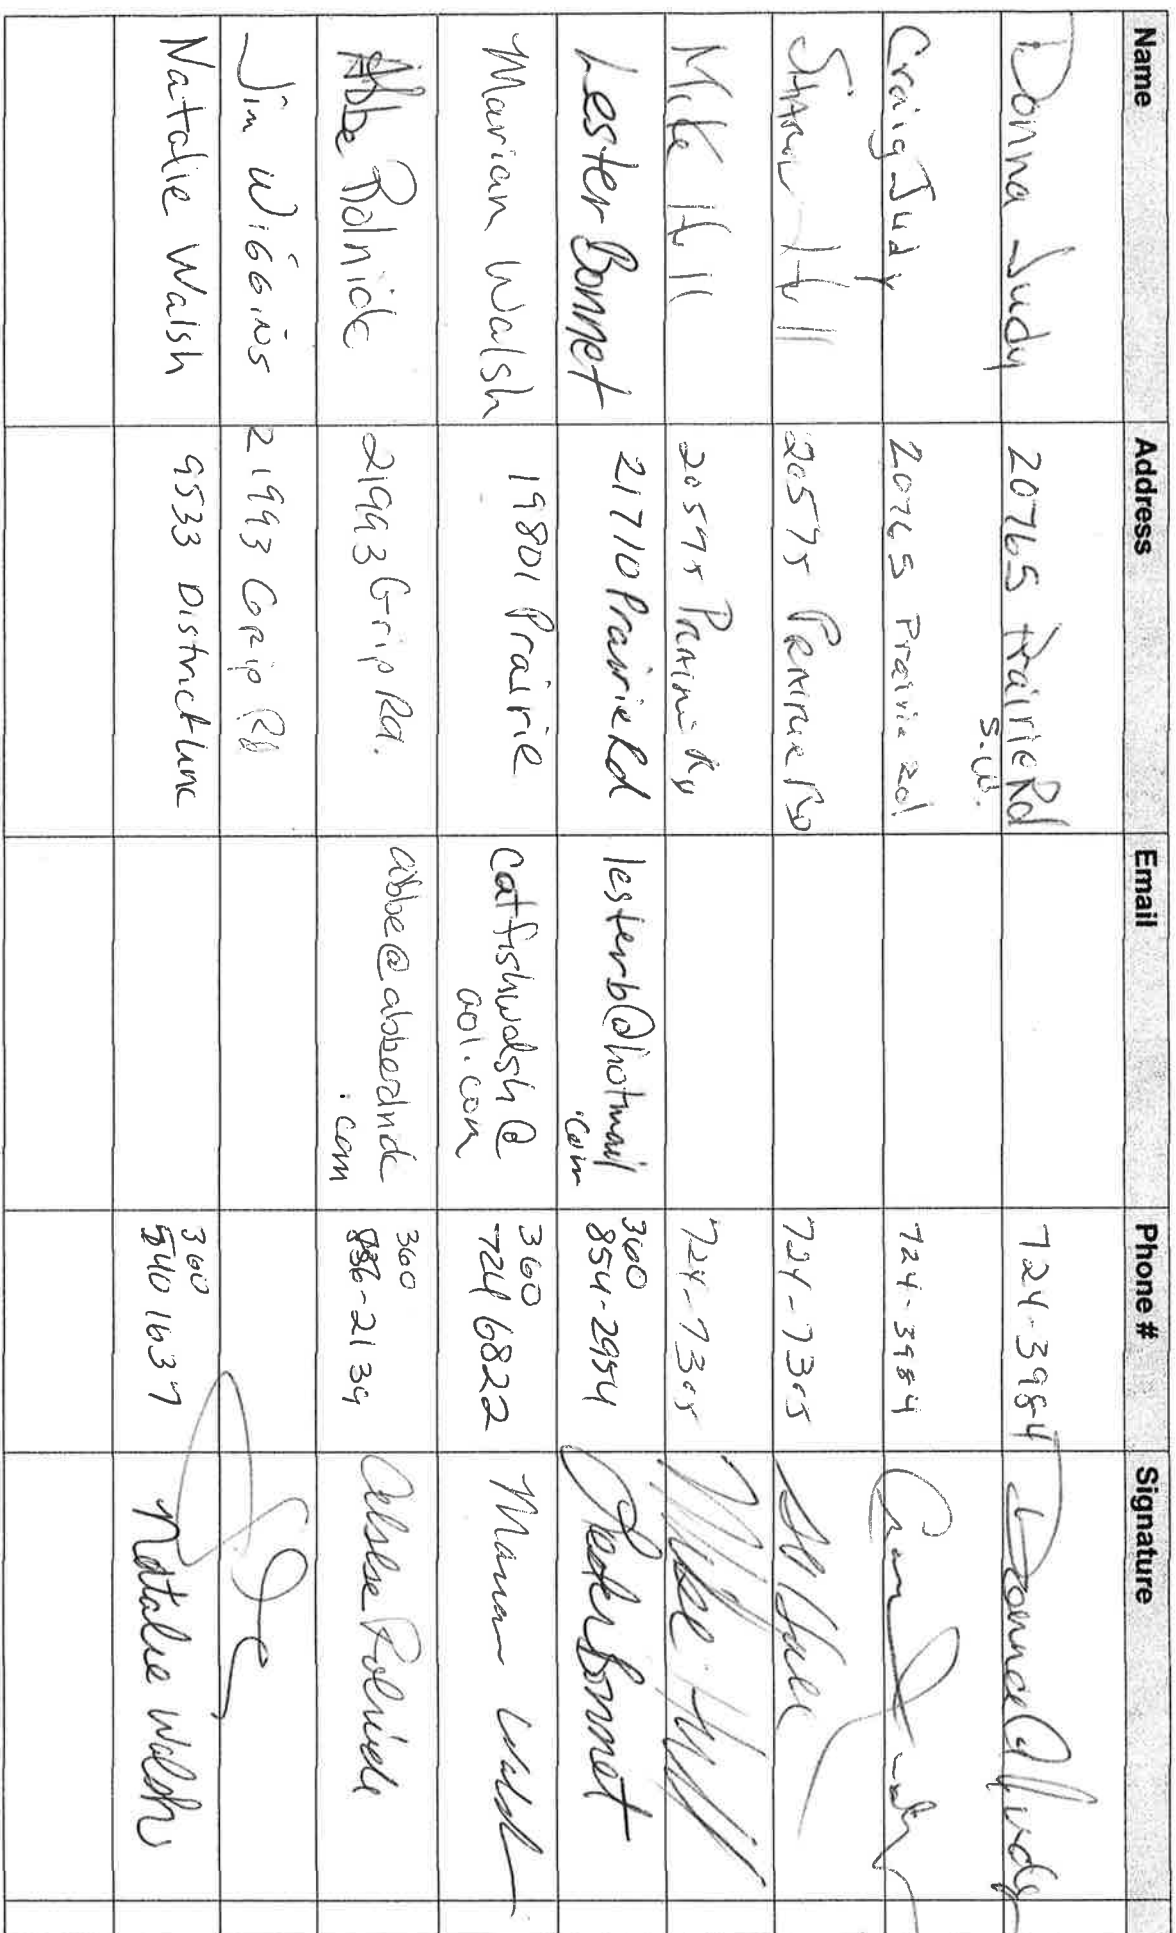 Name Address Email Phone # Signature
Donna Judy 20765 Prairie Rd 724-3984 Donna Judy
S.W.
Craig Judy 20765 Prairie Rd 724-3984
Sharol Hill 20575 Prairie Rd 724-7305
Mike Hill 20575 Prairie Rd 724-7305 Mike Hill
Lester Bonnet 21710 Prairie Rd lesterb@hotmail 360
.com 854-2954 Lester Bonnet
Marian Walsh 19801 Prairie catfishwalsh@ 360
aol.com 724 6822 Marian Walsh
Abbe Rolnick 21993 Grip Rd. abbe@abberolnick 360
.com 856-2139 Abbe Rolnick
Jim Wiggins 21993 Grip Rd
Natalie Walsh 9533 District Line 360
540 1637 Natalie Walsh